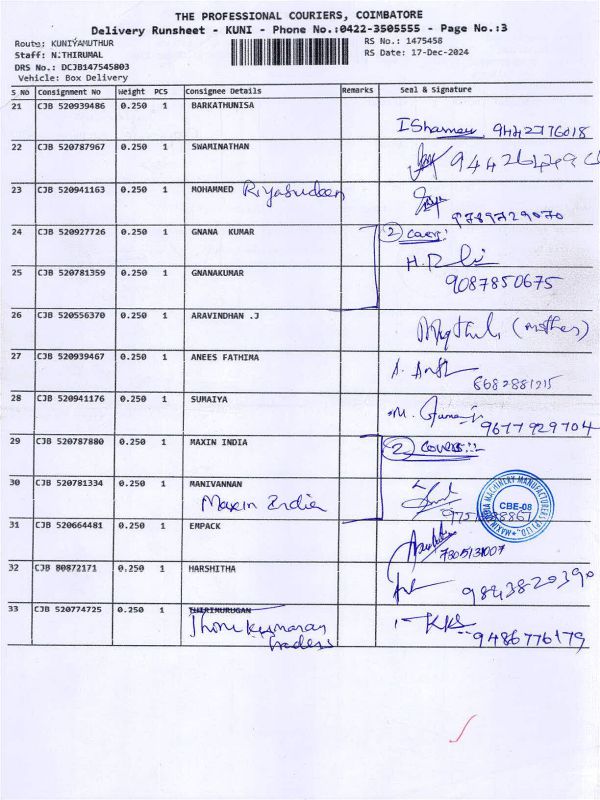 THE PROFESSIONAL COURIERS, COIMBATORE
Delivery Runsheet - KUNI - Phone No.:0422-3505555 - Page No.:3
Route: KUNIYAMUTHUR
RS No.: 1475458
Staff: N.THIRUMAL
RS Date: 17-Dec-2024
DRS No.: DCJB147545803
Vehicle: Box Delivery
S No Consignment No Weight PCS Consignee Details Remarks Seal & Signature
21 CJB 520939486 0.250 1 BARKATHUNISA
9442776018
22 CJB 520787967 0.250 1 SWAMINATHAN
23 CJB 520941163 0.250 1 MOHAMMED Riyasudeen
9789729070
24 CJB 520927726 0.250 1 GNANA KUMAR
2
25 CJB 520781359 0.250 1 GNANAKUMAR
9087850675
26 CJB 520556370 0.250 1 ARAVINDHAN .J
(mother)
27 CJB 520939467 0.250 1 ANEES FATHIMA
28 CJB 520941176 0.250 1 SUMAIYA
9677929704
29 CJB 520787880 0.250 1 MAXIN INDIA
2 covers
30 CJB 520781334 0.250 1 MANIVANNAN
Maxin India
CBE-08
31 CJB 520664481 0.250 1 EMPACK
7805131007
32 CJB 80872171 0.250 1 HARSHITHA
9843820390
33 CJB 520774725 0.250 1
Thirukumaran
traders
KKS
9486776179